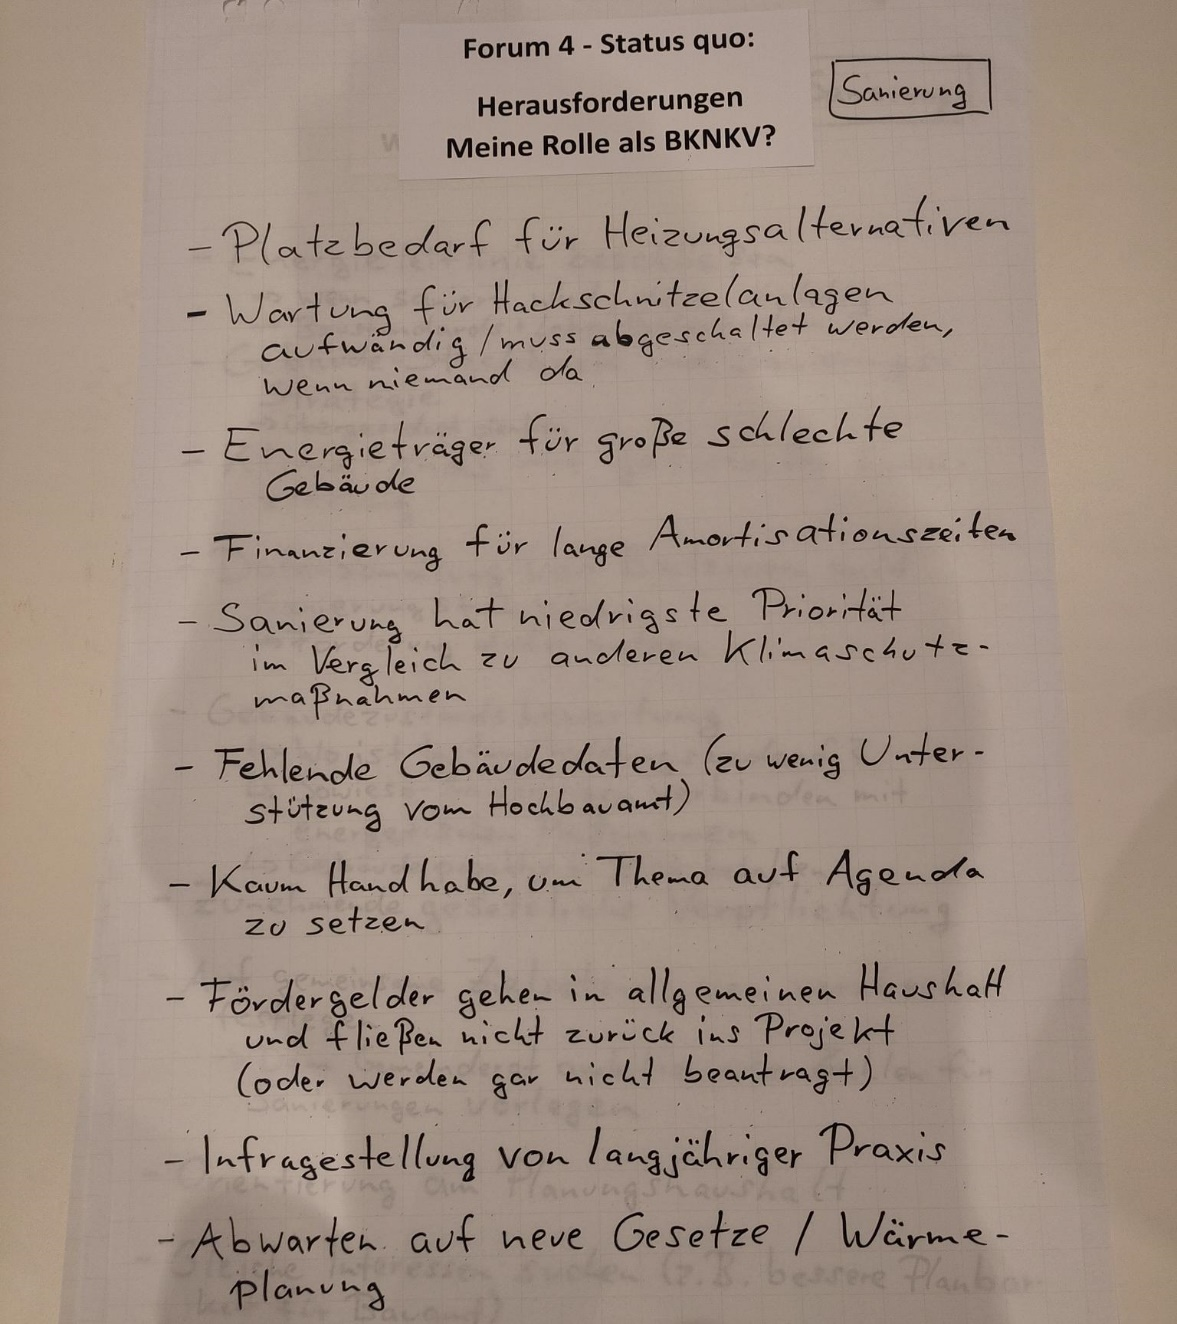 Forum 4 - Status quo:
Herausforderungen
Meine Rolle als BKNKV?
Sanierung
- Platzbedarf für Heizungsalternativen
- Wartung für Hackschnitzelanlagen
aufwändig / muss abgeschaltet werden,
wenn niemand da
- Energieträger für große schlechte
Gebäude
- Finanzierung für lange Amortisationszeiten
- Sanierung hat niedrigste Priorität
im Vergleich zu anderen Klimaschutz-
maßnahmen
- Fehlende Gebäudedaten (zu wenig Unter-
stützung vom Hochbauamt)
- Kaum Handhabe, um Thema auf Agenda
zu setzen
- Fördergelder gehen in allgemeinen Haushalt
und fließen nicht zurück ins Projekt
(oder werden gar nicht beantragt)
- Infragestellung von langjähriger Praxis
- Abwarten auf neue Gesetze / Wärme-
planung